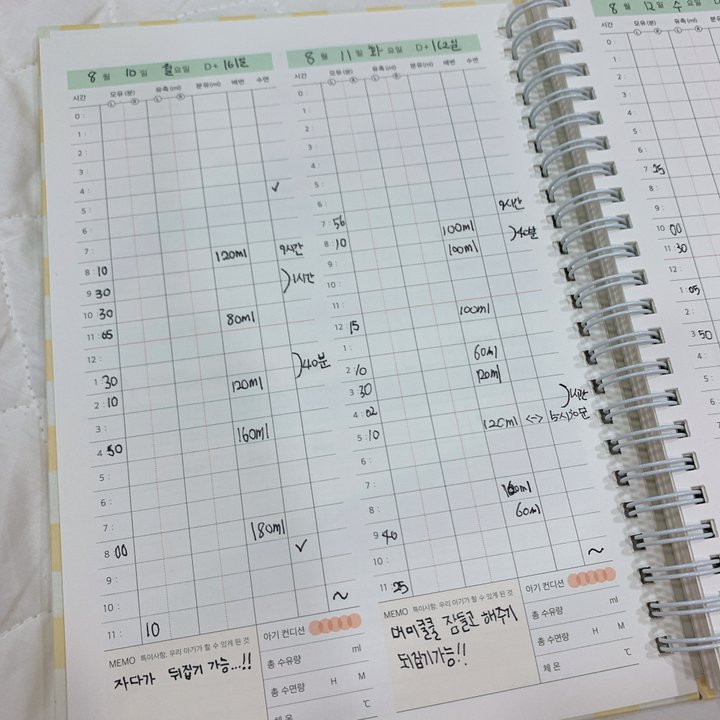 8 월 10 일 월요일 D+ 161일
시간 모유(분) 유축(ml) 분유(ml) 배변 수면
L R L R
0 :
1 :
2 :
3 :
4 : ✓
5 :
6 :
7 : 120ml 9시간
8 : 10 )1시간
9 : 30
10 : 30 80ml
11 : 05
12 : )40분
1 : 30 120ml
2 : 10
3 : 160ml
4 : 50
5 :
6 :
7 : 180ml
8 : 00 ✓
9 :
10 : ~
11 : 10
MEMO 특이사항, 우리 아기가 할 수 있게 된 것
자다가 뒤집기 가능...!!
아기 컨디션
총 수유량 ml
총 수면량 H M
체 온 ℃
8 월 11 일 화요일 D+ 162일
시간 모유(분) 유축(ml) 분유(ml) 배변 수면
L R L R
0 :
1 :
2 :
3 :
4 :
5 :
6 : 9시간
7 : 56 100ml )40분
8 : 10 100ml
9 :
10 :
11 : 100ml
12 : 15
1 : 60ml
2 : 10 120ml
3 : 30 )1시간
4 : 02 120ml <-> 5시30분
5 : 10
6 :
7 : 160ml
8 : 60ml
9 : 40
10 : ~
11 : 25
MEMO 특이사항, 우리 아기가 할 수 있게 된 것
잠들고 해주기
되집기가능!!
아기 컨디션
총 수유량 ml
총 수면량 H M
체 온 ℃
8 월 12 일 수 요일
시간 모유(분)
L R
0 :
1 :
2 :
3 :
4 :
5 :
6 :
7 : 25
8 :
9 :
10 : 00
11 : 30
12 :
1 : 05
2 :
3 : 50
4 :
5 :
6 :